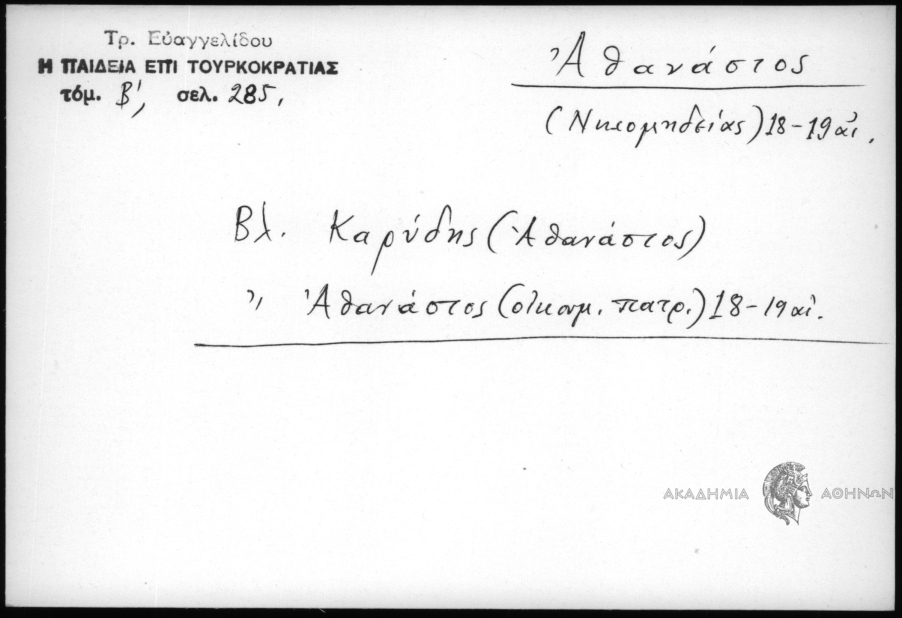 Τρ. Εὐαγγελίδου
Η ΠΑΙΔΕΙΑ ΕΠΙ ΤΟΥΡΚΟΚΡΑΤΙΑΣ
τόμ. Β', σελ. 285,
Ἀθανάσιος
(Νικομηδείας) 18-19 αἰ.
Βλ. Καρύδης (Ἀθανάσιος)
〃 Ἀθανάσιος (οἰκουμ. πατρ.) 18-19 αἰ.
ΑΚΑΔΗΜΙΑ ΑΘΗΝΩΝ